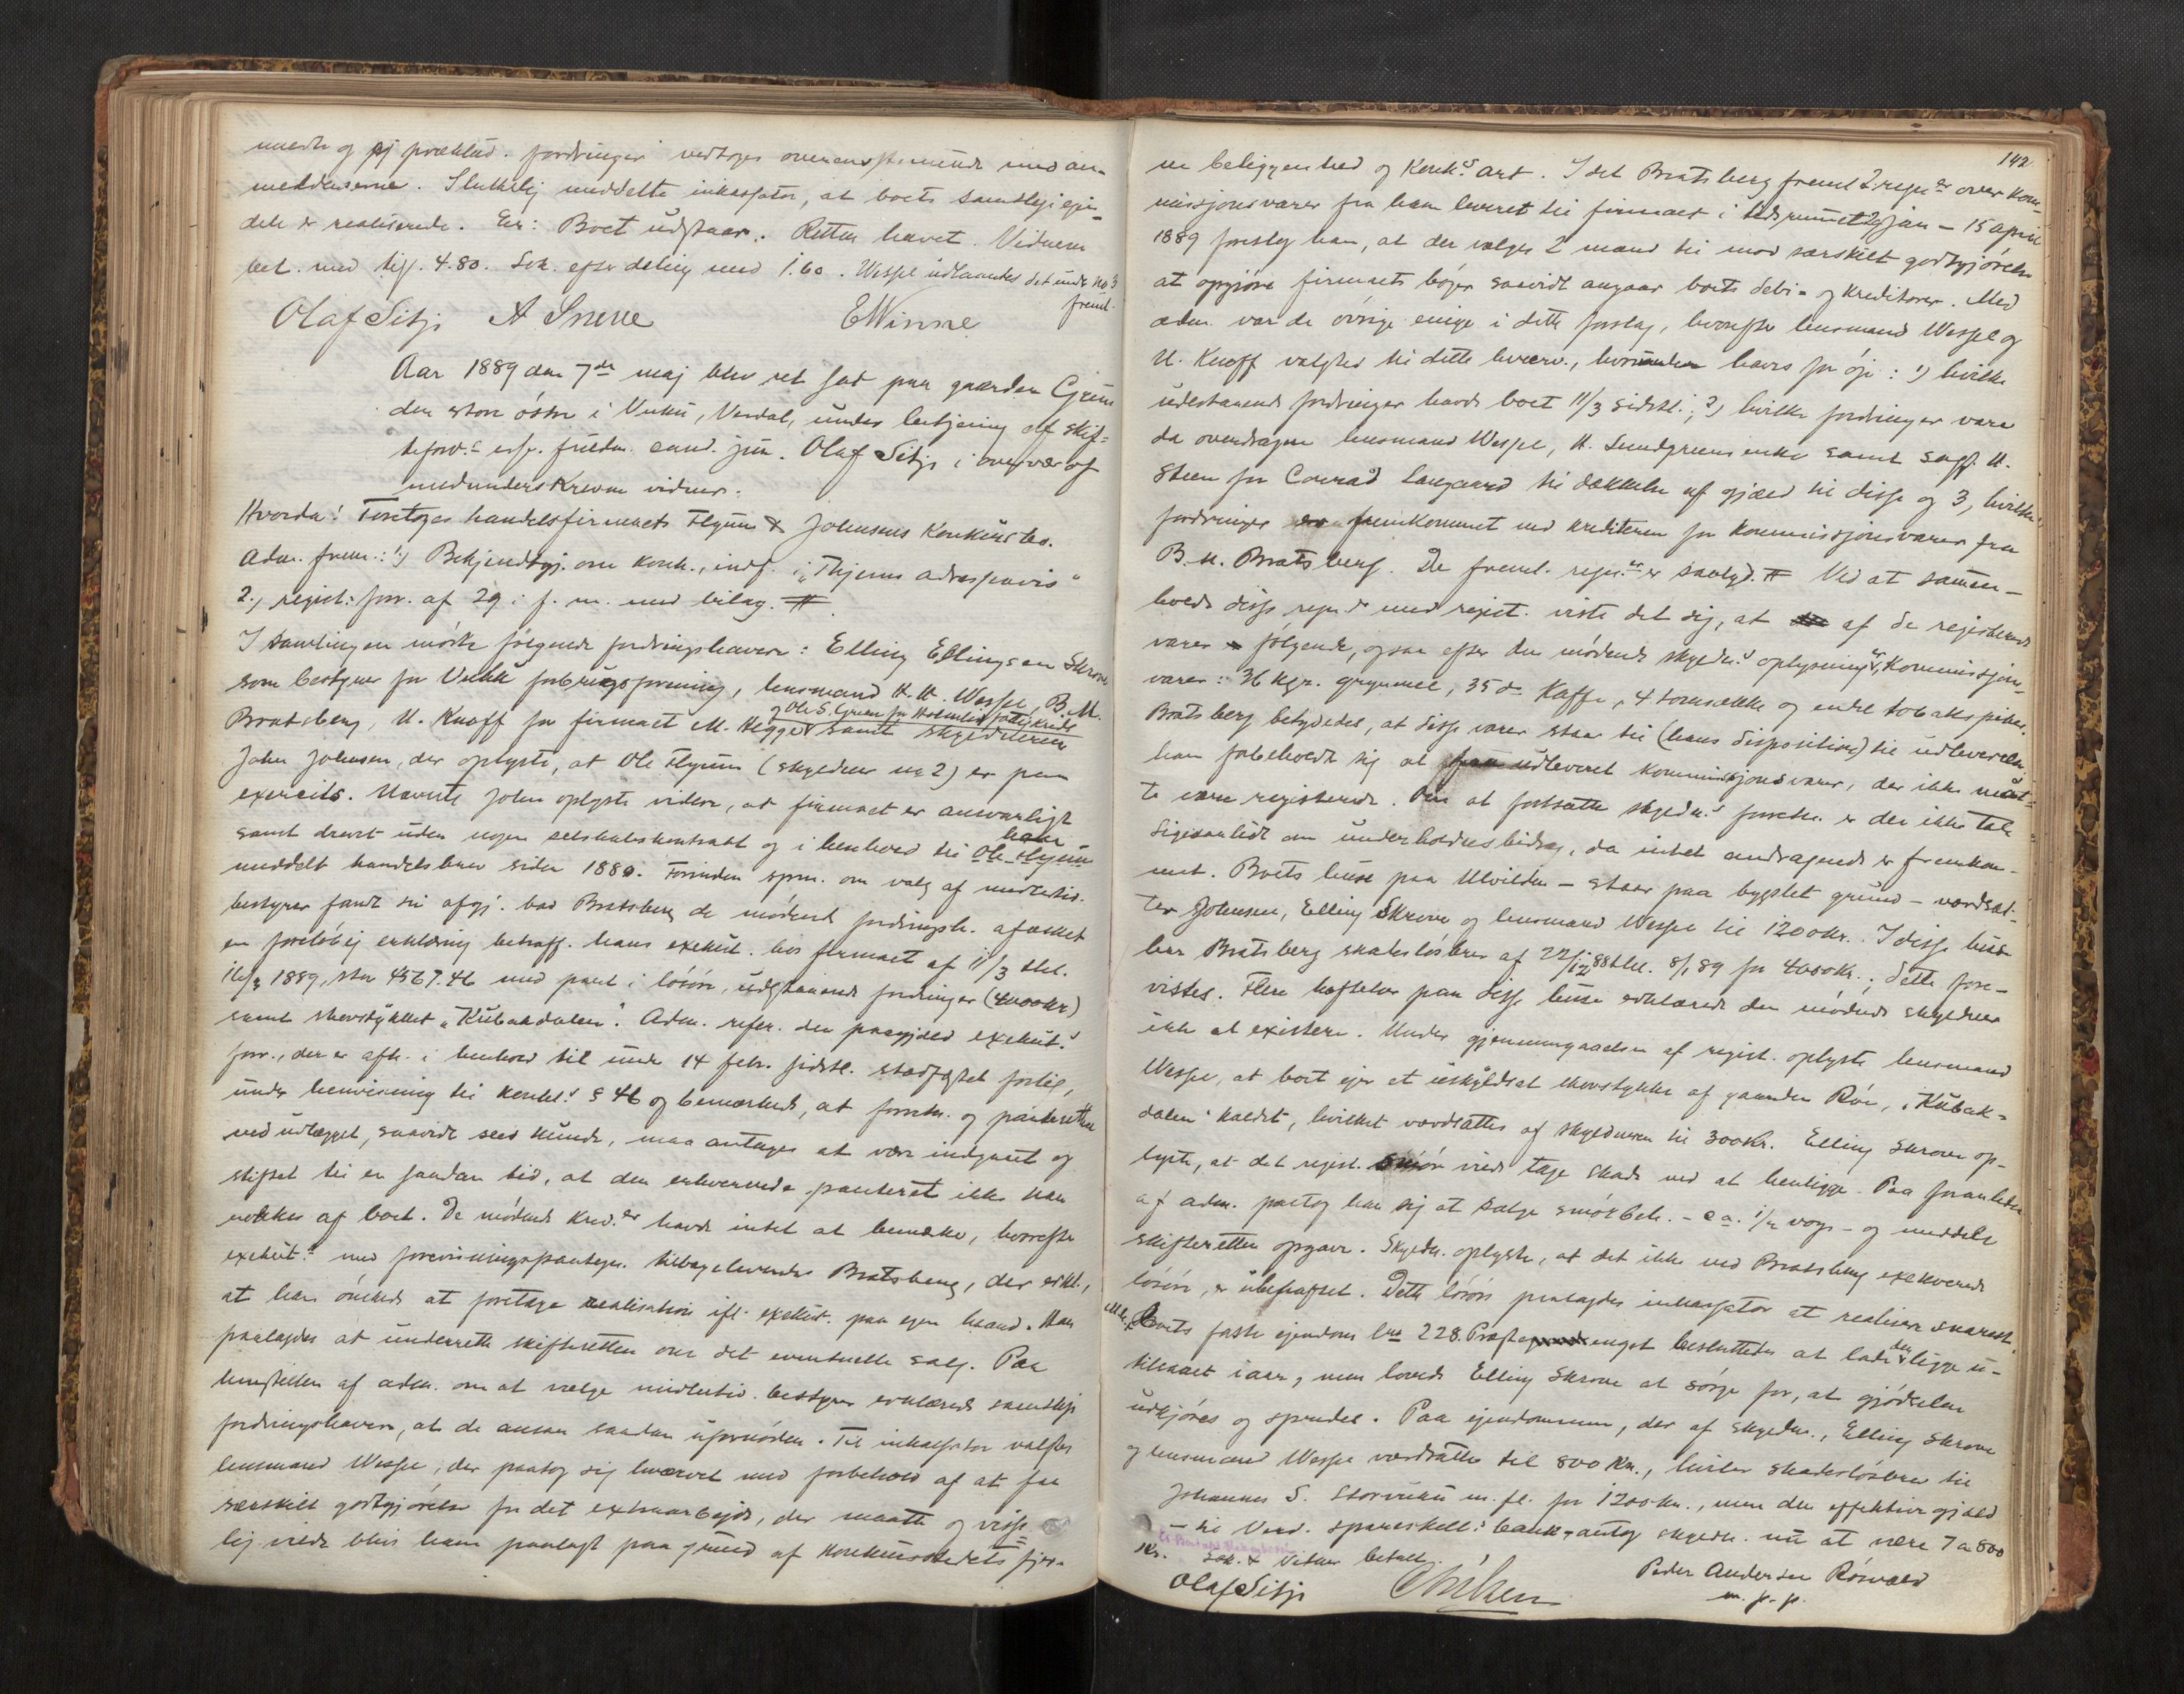 meldte og ej præklud. fordringer vedtoges overensstemmende med an-
meldelserne. Slutteligt meddelte inkassator, at boets samtlige ejen-
dele er realiserede. Er: Boet udstaar. Retten hævet. Vidnerne
bet. med tils. 4.80. Sok. efter deling med 1.60. Wessel udlaante det under No 3
freml.
Olaf Sitje A Snerve E Winne
Aar 1889 den 7de maj blev ret sat paa gaarden Grun-
den store østre i Vuku, Verdal, under betjening af skif-
teforv.s esp. fuldm. cand. jur. Olaf Sitje i overvær af
medunderskrevne vidner.
Hvorda: Foretoges handelsfirmaets Flyum & Johnsens Konkursbo.
Adm. frem.: 1) Bekjendtgj. om konk., indf. i "Thjems adresseavis"
2, regist: forr. af 29 i f. m. med bilag. #
I samlingen mødte følgende fordringshavere: Elling Ellingsen Skrove
som bestyrer for Vuku forbrugsforening, lensmand H. H. Wessel, B. M.
Bratsberg, U. Knoff for firmaet M. Hegge samt skyldneren
og Ole S. Green for Holmlis fattigkreds
John Johnsen, der oplyste, at Ole Flyum (skyldner no 2) er paa
exercits. Nævnte John oplyste videre, at firmaet er ansvarligt
samt drevet uden nogen selskabskontrakt og i henhold til Ole Flyum
ham
meddelt handelsbrev siden 1880. Forinden spm. om valg af midlertid.
bestyrer fandt sin afgj. bad Bratsberg de mødende fordringsh. afæsket
en foreløbig erklæring betræff. hans exekut. hos firmaet af 11/3 thl.
16/3 1889, stor 4567.46 med pant i løsøre, udestaaende fordringer (4000kr)
samt skovstykket "Kubakdalen". Adm. refer. den paagjeld exekut.s
forr., der er afh. i henhold til under 14 febr. sidstl. stadfæstet forlig,
under henvisning til konkl.s § 46 og bemærkede, at forretn. og panteretten
ved udlægget, saavidt sees kunde, maa antages at være indgaaet og
stiftet til en saadan tid, at den erhvervede panteret ikke kan
rokkes af boet. De mødende kred.er havde intet at bemærke, hvorefter
exekut.s med forevisningspaategn. tilbageleveredes Bratsberg, der erkl.,
at han ønskede at foretage realisation ifl. exekut. paa egen haand. Han
paalagdes at underrette skifteretten om det eventuelle salg. Paa
henstillen af adm. om at vælge midlertid. bestyrer erklærede samtlige
fordringshavere, at de ansaa saadan ufornøden. Til inkassator valgtes
lensmand Wessel, der paatog sig hvervet med forbehold af at faa
særskilt godtgjørelse for det extraarbejde, der maatte og visse-
lig vilde blive ham paalagt paa grund af konkursstedets fjer-
142
ne beliggenhed og Konk.s art. I det Bratsberg freml. 2 regn.er over kom-
missjonsvarer fra ham leveret til firmaet i tidsrummet 29 jan – 15 april
1889 foreslog han, at der valges 2 mænd til mod særskilt godtgjørelse
at opgjøre firmaets bøger saavidt angaar boets debi- og kreditorer. Med
adm. var de øvrige enige i dette forslag, hvorefter lensmand Wessel og
U. Knoff valgtes til dette hverv., hvorunder haves for øje: 1) hvilke
udestaaende fordringer havde boet 11/3 sidstl.; 2) hvilke fordringer vare
da overdragne lensmand Wessel, H. Lundgreens enke samt sagf. H.
Steen for Conrad Langaard til dækkelse af gjæld til disse og 3, hvilke
fordringer er fremkommet ved krediteren for kommissjonsvarer fra
B. M. Bratsberg. De freml. regn.er er saalyd. # Ved at sammen-
holde disse regn.er med regist. viste det sig, at af de registrerede
varer følgende, ogsaa efter den mødende skyldn.s oplysninger, kommissjons-
varer: 36 kgr. grynmel, 35 do kaffe, 4 tomsække og endel tobakspiber.
Bratsberg betydedes, at disse varer staar til (hans disposition) til udleverelse,
han forbeholdt sig at faa udleveret kommissjonsvarer, der ikke maat-
te være registrerede. Om at fortsætte skyldn.s forretn. er der ikke tale
ligesaalidt om underholdsbidrag, da intet andragende er fremkom-
met. Boets huse paa Ulvilden – staar paa bygslet grund – værdsat-
tes Johnsen, Elling Skrove og lensmand Wessel til 1200 kr. I disse huse
har Bratsberg skadesløsbrev af 22/12 88 thl. 8/1 89 for 4000 kr.; dette fore-
vistes. Flere heftelser paa disse huse erklærede den mødende skyldner
ikke at existere. Under gjennemgaaelsen af regist. oplyste lensmand
Wessel, at boet ejer et uskyldsat skovstykke af gaarden Røe, "Kubak-
dalen" kaldet, hvilket værdsættes af skyldneren til 300 kr. Elling Skrove op-
lyste, at det regist. smør vilde tage skade ved at henligge. Paa foranledn.
af adm. paatog han sig at sælge smørbeh. – ca. 1/2 vog – og meddele
skifteretten opgave. Skyldn. oplyste, at det ikke ved Bratsberg exekverede
løsøre, er ubehæftet. Dette løsøre paalagdes inkassator at realisere snarest.
Boets faste ejendom lno 228. Præsteenget besluttedes at lade den ligge u-
tilsaaet iaar, men lovede Elling Skrove at sørge for, at gjødselen
udkjøres og spredes. Paa ejendommen, der af skyldn., Elling Skrove
og lensmand Wessel værdsattes til 800 kr., hviler skadesløsbrev til
Johannes S. Storvuku m. fl. for 1200 kr., men den effektive gjæld
– til Verd. spareskill.s bank – antog skyldn. nu at være 7 a 800
kr. Sok. & Vidner betalt.
Olaf Sitje Peder Andersen Rosvold
m. p. p.